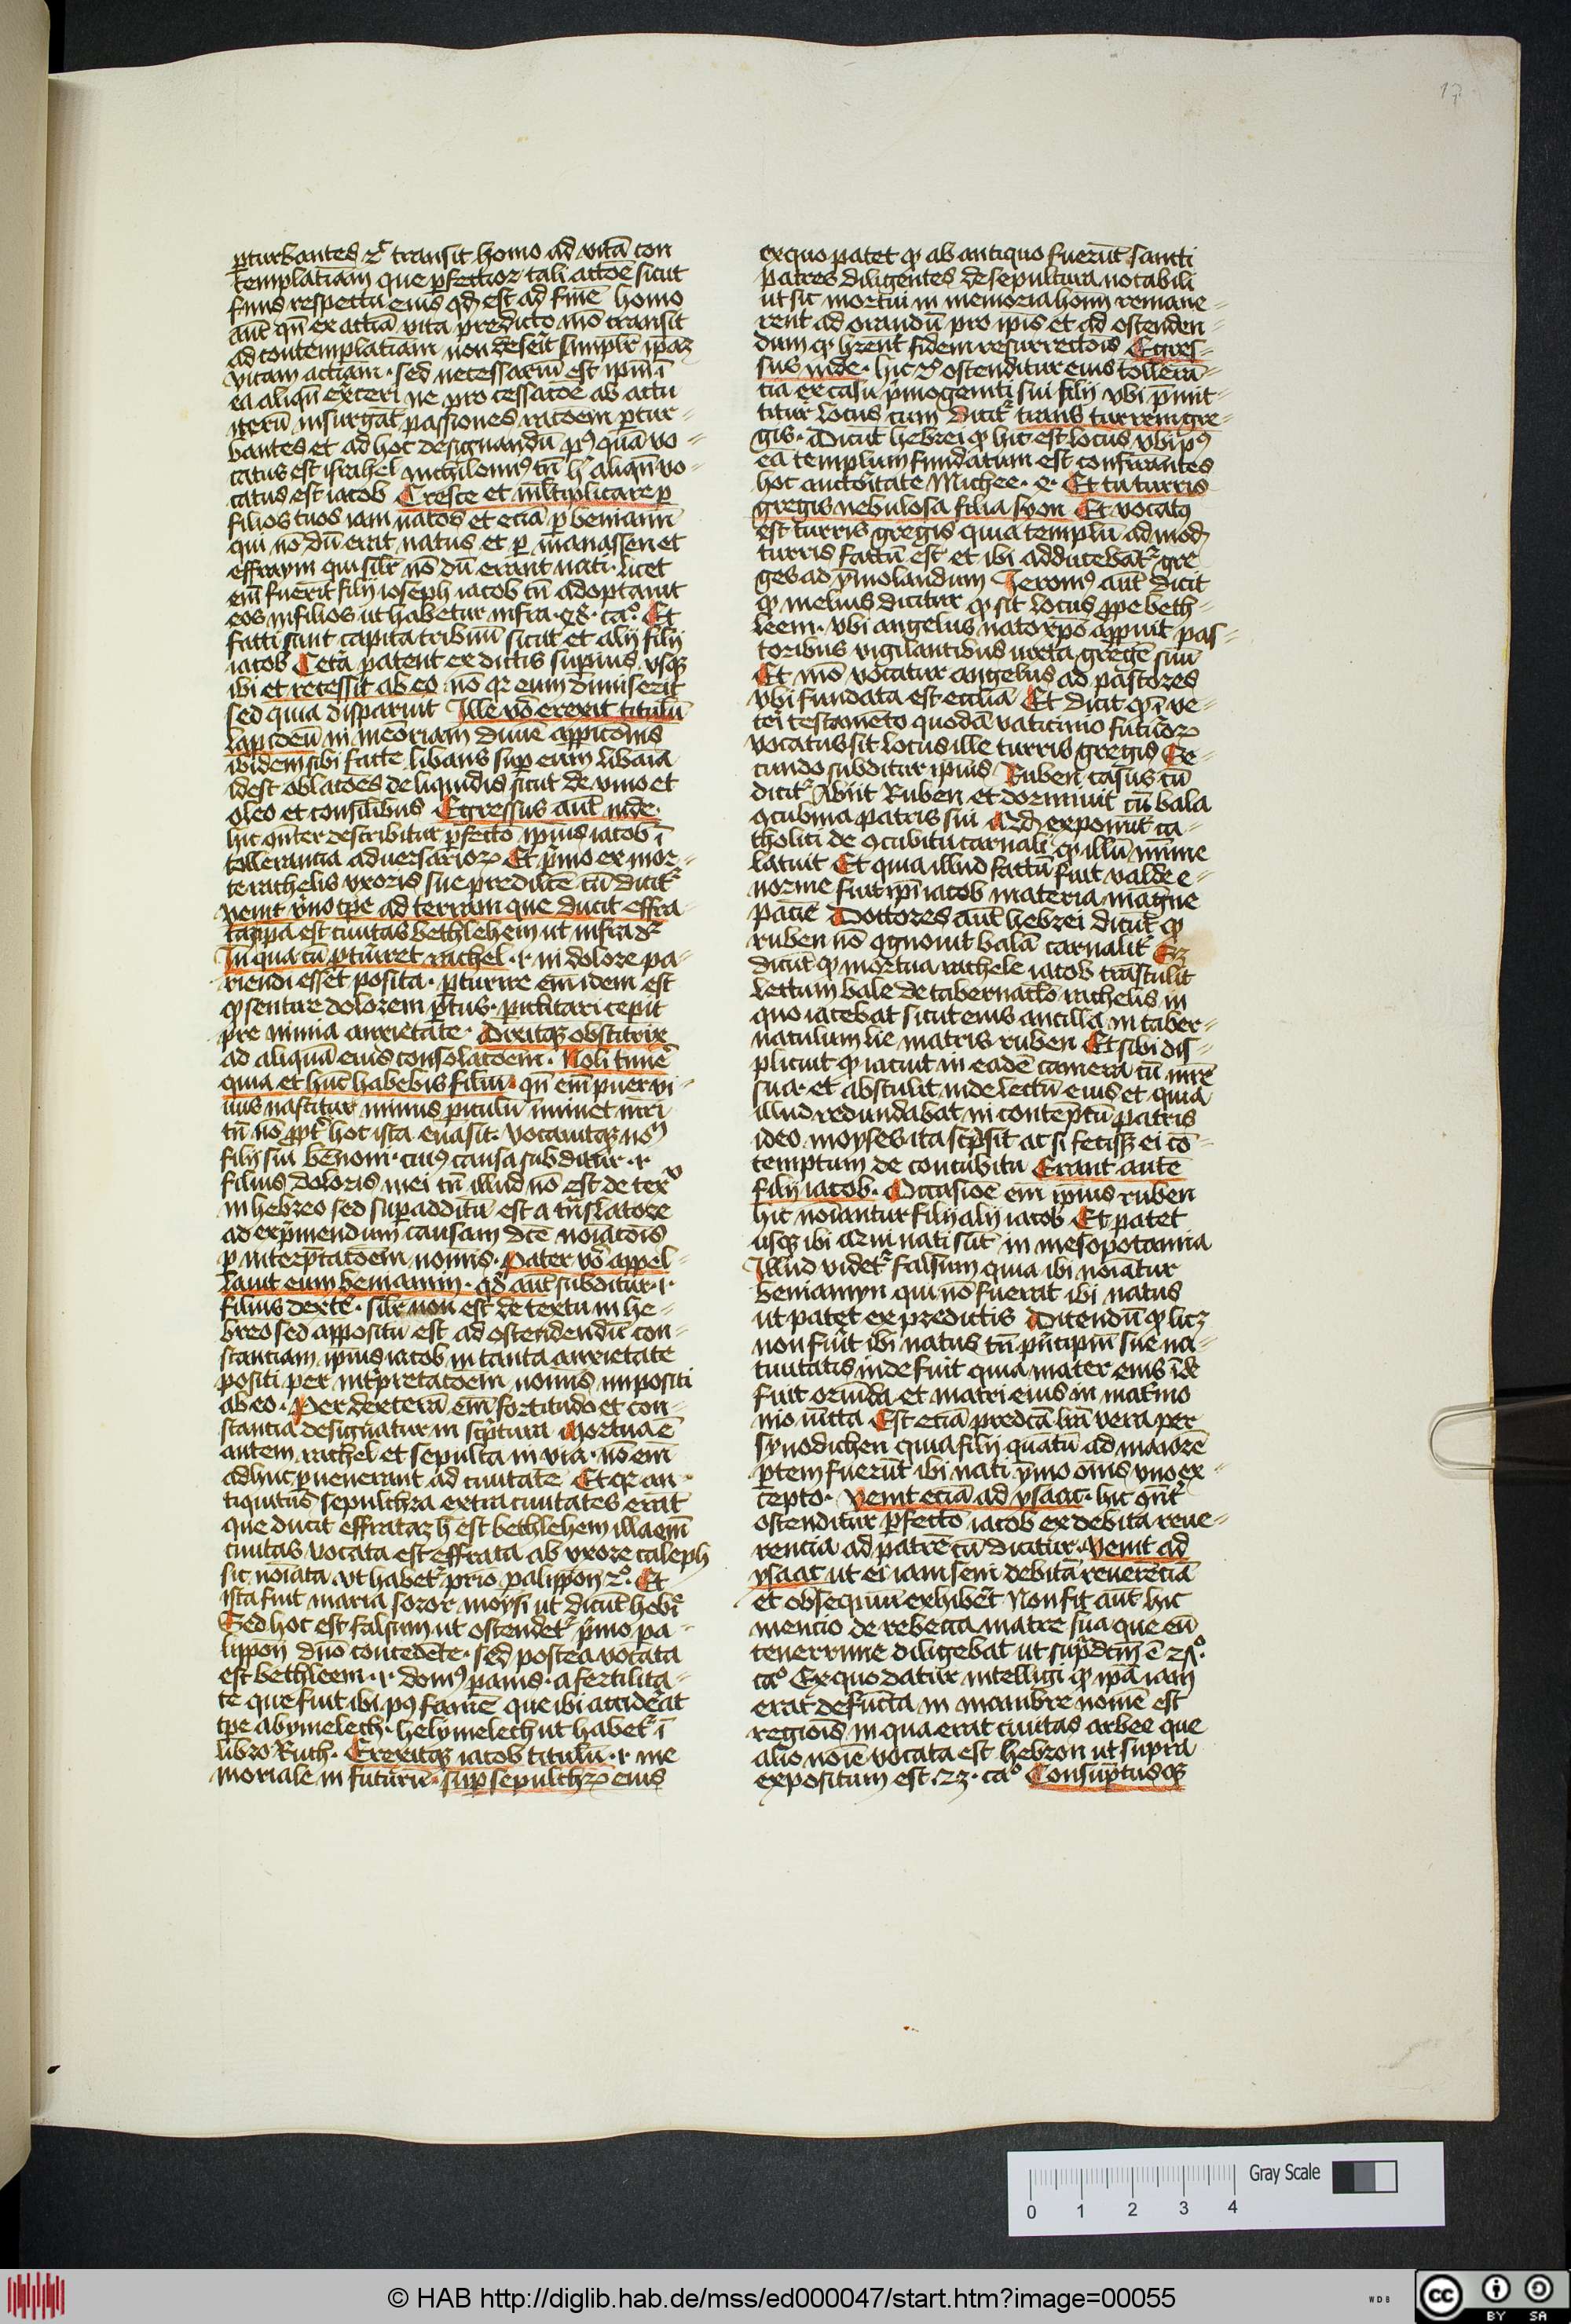 17
perturbantes ⁊c̄ transit homo ad vitā con
templatiuam que perfectior tali actōe sicut
finis respectu eius qd est ad finē homo
aūt qn̄ ex actīa vita predicto mō transit
ad contemplatiuam non deserit simplr̄ ipaꝫ
vitam actiuam · sed necessariū est ipm ī
ea aliqn̄ exceri ne pro cessatōe ab actu
iterū insurgāt passiones racoēm ptur-
bantes et ad hoc designandū pꝰquā vo-
catus est israhel nichilominꝰ tn̄ hͥ aliqn̄ vo-
catus est iacob Cresce et ml̄tiplicare p
filios tuos iam natos et etiā p beniamī
qui nō dū erat natus et p manassen et
effraym qui silr̄ nō dū erant nati · licet
em̄ fuerīt filij ioseph iacob tn̄ adoptauit
eos in filios ut habetur infra · 48 · caº · Et
facti sunt capita tribuū sicut et alij filij
iacob Cetā patent ex dictis supius vsqꝫ
ibi et recessit ab eo nō qꝛ eum dimiserit
sed quia disparuit Ille vō erexit titulū
lapideū in meoriam diuine appitōnis
ibidem sibi facte libans sup eum libaīa
idest oblatoēs de liquidis sicut de vino et
oleo et consilībus Egressus aūt inde ·
hic qnter describitur pfectō ipius iacob ī
tollerancia aduersarioꝝ Et pͥmo ex mor-
te rachelis vxoris sue predilcē cū dicitᷣ
venit vno tpe ad terram que ducit effra
tam ista est ciuitas bethlehem ut infra dꝛ
In qua cū pturiret rachel · i · in dolore pa-
riendi esset posita · pturire em̄ idem est
qp sentire dolorem ptus · piclitari cepit
pre nimia anxietate · Dixitqꝫ obstetrix
ad aliquā eius consolatoēm · Noli timē
quia et hūc habebis filiū · qn̄ em̄ puer vi-
uus nascitur minus piculū iminet mr̄i
tn̄ nō ppt hoc ista euasit · vocauitqꝫ nō
filij sui benoni · cuiꝰ causa subditur · i ·
filius doloris mei tn̄ illud nō est de tex
in hebreo sed superadditū est a trāslatore
ad expͥmendum causam dcē noiatōis
p interpͣtatoēm nominis · pater vō appel-
lauit eum beniamin · qd aūt subditur · i ·
filius dextē · silr̄ non est de textu in he-
breo sed appositū est ad ostendendū con-
stantiam ipius iacob in tanta anxietate
positi per intpretatoēm nominis impositi
ab eo · Per dexterā em̄ fortitudo et con-
stancia designatur in scͥptura Mortua ē
autem rachel et sepulta in via · nō em̄
adhuc puenerant ad ciuitatē Et qꝛ an-
tiquitus sepulchra extra ciuitates erāt
que ducit effrataꝫ h̄ est bethlehem illa em̄
ciuitas vocata est effrata ab vxore caleph
sic noiata vt habetᷣ prio palippon̄ 2º · Et
ista fuit maria soror moysi ut dicūt hebi
Sed hoc est falsum ut ostendetᷣ pͥmo pa-
lippon̄ dn̄o concedēte · sed postea vocata
est bethleem · i · domꝰ panis · a fertilita-
te que fuit ibi pꝰ famē que ibi acciderat
tpe abymelech · helymelech ut habetᷣ ī
libro Ruth · Erexitqꝫ iacob titulū · i · me
moriale in futurū · sup sepulchrꝫ eius
ex quo patet qp ab antiquo fuerūt sancti
patres diligentes de sepultura notabili
ut sic mortui in memoria hoīm remane-
rent ad orandū pro ipis et ad ostenden-
dum qp hrēnt fidem resurrectōis Egres-
sus inde · hic ostenditur eius tollerā-
tia ex casu pͥmogeniti sui filij vbi pͥmit-
titur locus cum dicitᷣ trans turrem gre-
gis · Dicūt hebrei qp hic est locus vbi pꝰ
ea templum fundatum est confirantes
hoc auctoritate Michee · 4 · Et tu turris
gregis nebulosa filia syon Et vocatꝰ
est turris gregis quia templū ad mod
turris factū est et ibi adducebātᷣ gre
ges ad ymolandum Ieronꝰ aūt dicit
qp melius dicitur qp sit locus ppe beth-
leem · vbi angelus nato xp̄o appuit pas-
toribus vigilantibus iuxta gregē suū
Et mō vocatur angelus ad pastores
vbi fundata est eccīia Et dicit qp ī ve-
teri testamēto quodā vaticinio futuroꝝ
vocatus sit locus ille turris gregis Se-
cundo subditur ipius Ruben casus cū
dicitᷣ Abiit Ruben et dormiuit cū bala
ꝯcubina patris sui Qd exponūt ca-
tholici de ꝯcubitu carnali qp illū mīme
latuit Et quia illud factū fuit valde e-
norme fuit ipi iacob materia magne
pacīe Doctores aūt hebrei dicūt qp
ruben nō ꝯgnouit balā carnalitᷣ Sꝫ
dicūt qp mortua rachele iacob trāstulit
lectum bale de tabernacl̄o rachelis in
quo iacebat sicut eius ancilla in taber-
naculum lie matris ruben Et sibi dis-
plicuit qp iacuit in eadē camera cū mr̄e
sua · et abstulit inde lectū eius et quia
illud redundabat in conteptū patris
ideo moyses ita scͥpsit ac si fecissꝫ ei cō-
temptum de concubitu Erant autē
filij iacob · Occasioē em̄ ipius ruben
hic noiantur filij alij iacob Et patet
usqꝫ ibi Qui nati sūt in mesopotamia
Illud videtᷣ falsum quia ibi noiatur
beniamyn qui nō fuerat ibi natus
ut patet ex predictis Dicendū qp licꝫ
non fuīt ibi natus tn̄ pͥncipiū sue na-
tiuitatis inde fuit quia mater eius īde
fuit oriūda et matri eius in matͥmo
nio iūcta Est etiā predcā lr̄a vera per
synodichen quia filij quātū ad maiorē
ptem fuerūt ibi nati ymo oīns vno ex-
cepto · Venit etiā ad ysaac · hic qnt
ostenditur pfectō iacob ex debita reue-
rencia ad patrē cū dicitur · Venit ad
ysaac ut ei iam seni debitā reuerēciā
et obsequiū exhibēt Non fit aūt hic
mencio de rebecca matre sua que eū
tenerrime diligebat ut supͣ dcm̄ ē 25º ·
caº Ex quo datur intelligi qp ipā iam
erat defuncta in mambre nomē est
regiois in qua erat ciuitas arbee que
alio noīe vocata est hebron ut supra
expositum est · 23 · caº Consūptusqꝫ
0 1 2 3 4
Gray Scale
© HAB http://diglib.hab.de/mss/ed000047/start.htm?image=00055
WDB
cc BY SA